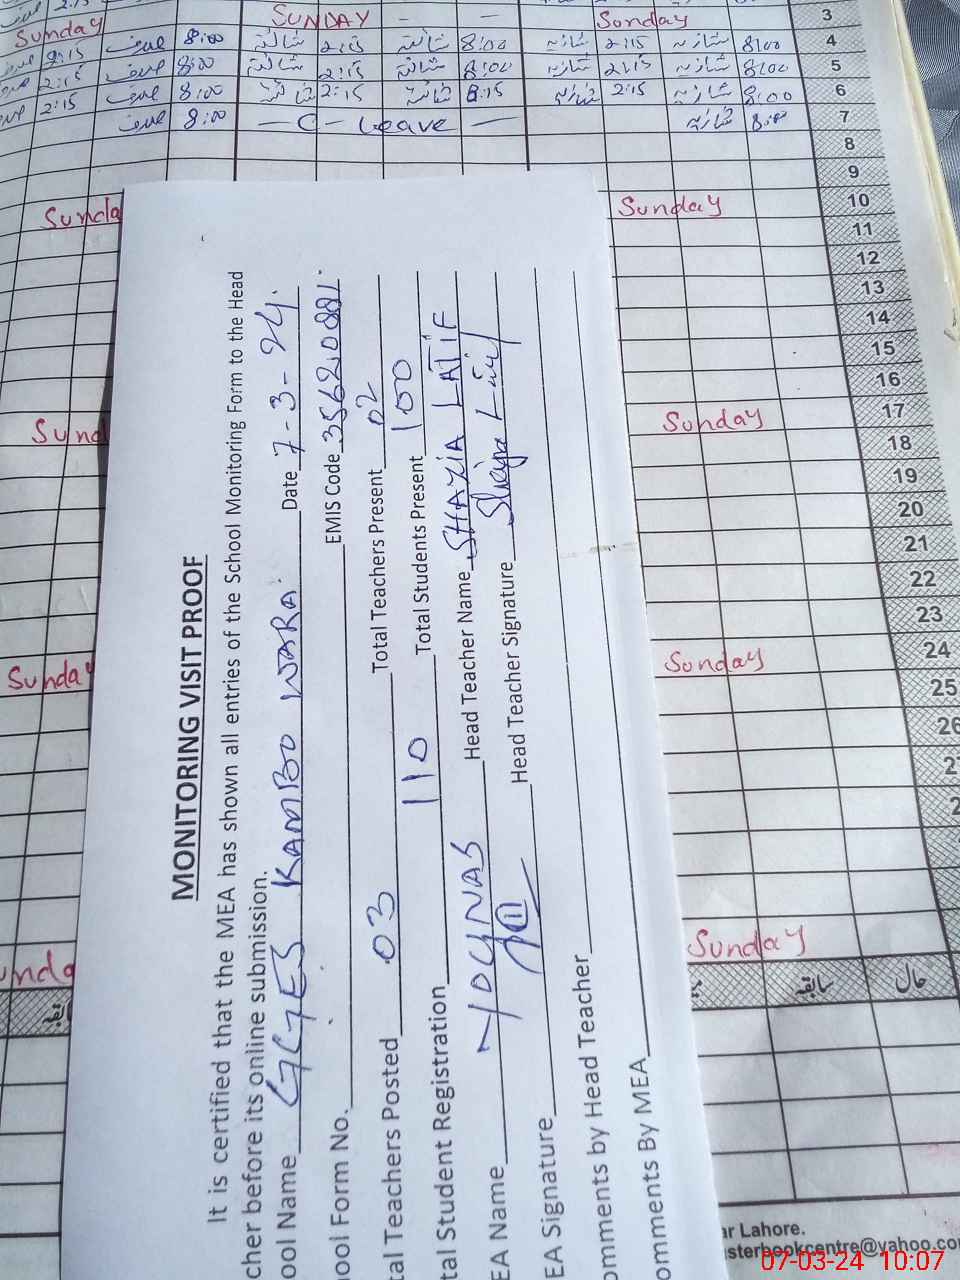 Sunday SUNDAY — — Sunday 3
8:00 شائستہ 2:15 شائستہ 8:00 شازیہ 2:15 شازیہ 8:00 4
2:15 8:00 شائستہ 2:15 شائستہ 8:00 شازیہ 2:15 شازیہ 8:00 5
2:15 8:00 شائستہ 2:15 شائستہ 8:15 شازیہ 2:15 شازیہ 8:00 6
8:00 — C — Leave — شازیہ 8:00 7
8
9
Sunda Sunday 10
11
12
13
14
15
16
Sund Sunday 17
18
19
20
21
22
23
Sunday Sunday 24
25
26
2
2
Sunday
سابقہ حال
MONITORING VISIT PROOF
It is certified that the MEA has shown all entries of the School Monitoring Form to the Head
cher before its online submission.
ool Name GGES KAMBO WARA. Date 7-3-24.
ool Form No. EMIS Code 35620881.
tal Teachers Posted 03 Total Teachers Present 02
tal Student Registration 110 Total Students Present 100
EA Name YOUNAS Head Teacher Name SHAZIA LATIF
EA Signature Head Teacher Signature Shazia Latif
omments by Head Teacher
omments By MEA
ar Lahore.
sterbookcentre@yahoo.co
07-03-24 10:07